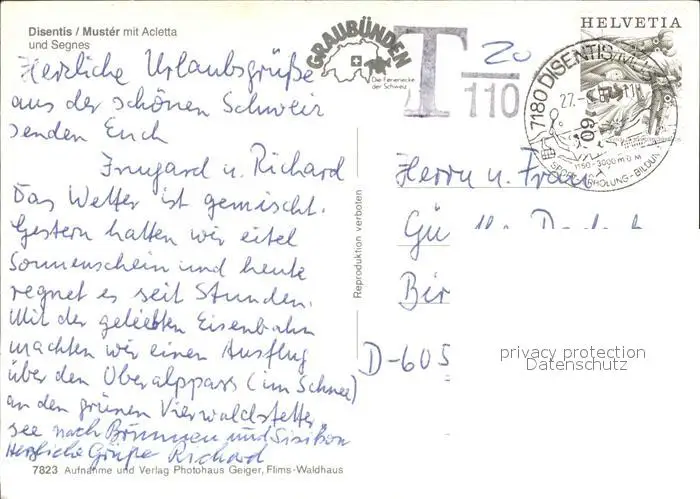 Disentis / Mustér mit Acletta
und Segnes
Herzliche Urlaubsgrüße
aus der schönen Schweiz
senden Euch
Irmgard u. Richard
Das Wetter ist gemischt.
Gestern hatten wir eitel
Sonnenschein und heute
regnet es seit Stunden.
Mit der geliebten Eisenbahn
machten wir einen Ausflug
über den Oberalppass (im Schnee)
an den grünen Vierwaldstetter
see nach Brunnen und Sisikon
Herzliche Grüße Richard
7823 Aufnahme und Verlag Photohaus Geiger, Flims-Waldhaus
Reproduktion verboten
GRAUBÜNDEN
Die Ferienecke
der Schweiz
T 20
110
HELVETIA
60
7180 DISENTIS/MUSTÉR
27.
1150-3000 m ü M
SPORT-ERHOLUNG-BILDUNG
Herrn u. Frau
Gü
Bir
D-605
privacy protection
Datenschutz